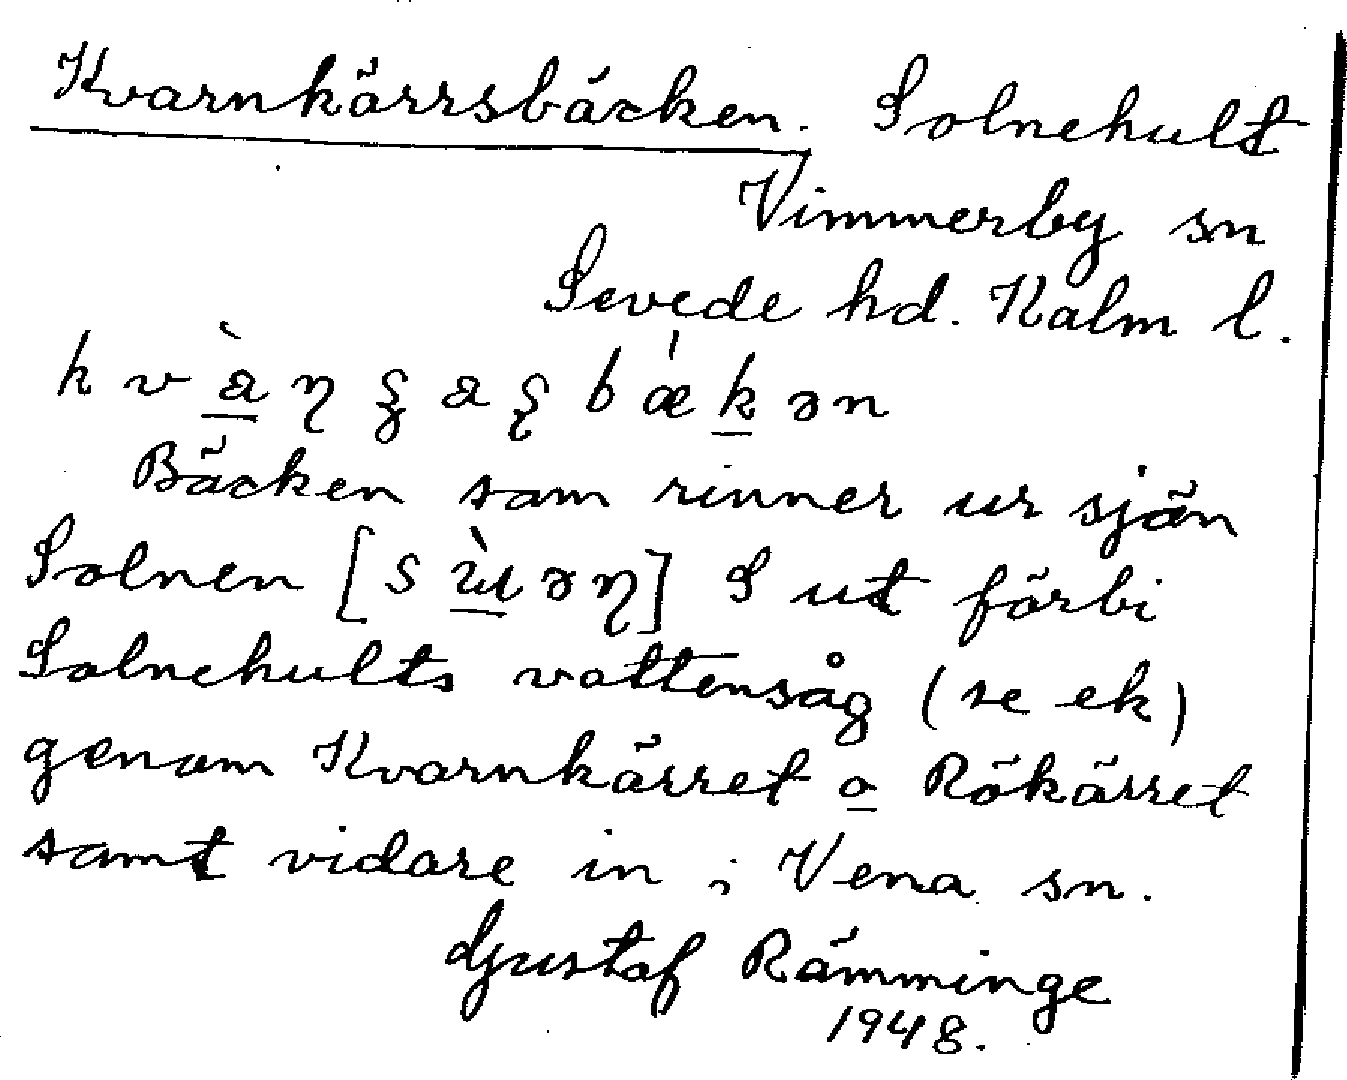 Kvarnkärrsbäcken. Solnehult
Vimmerby sn
Sevede hd. Kalm l.
Bäcken som rinner ur sjön
Solnen S ut förbi
Solnehults vattensåg (se ek)
genom Kvarnkärret o Rökärret
samt vidare in i Vena sn.
Gustaf Rämminge
1948.